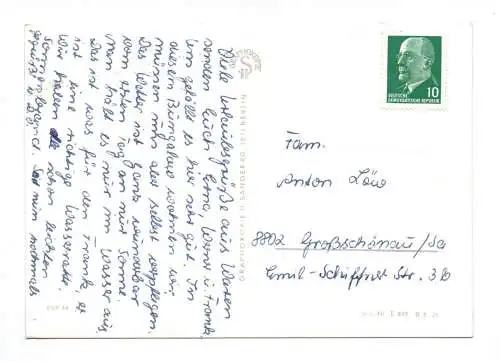 Viele Urlaubsgrüße aus Waren
senden Euch Erna, Werner u. Frank.
Uns gefällt es hier sehr gut. In
diesem Bungalow wohnen wir
müssen uns aber selbst verpflegen.
Das Wetter ist ganz wunderbar
vom ersten Tag an nur Sonne.
man hält es nur im Wasser aus.
Das ist was für den Frank, er
ist eine richtige Wasserratte.
Wir haben alle schon leichten
Sonnenbrand. Seid nun nochmals
gegrüßt v. D. O.
GRAPHOKOPIE H. SANDBERG 1071 BERLIN
10
DEUTSCHE
DEMOKRATISCHE REPUBLIK
Fam.
Anton Löw
8802 Großschönau/Sa
Emil-Schiffner Str. 36